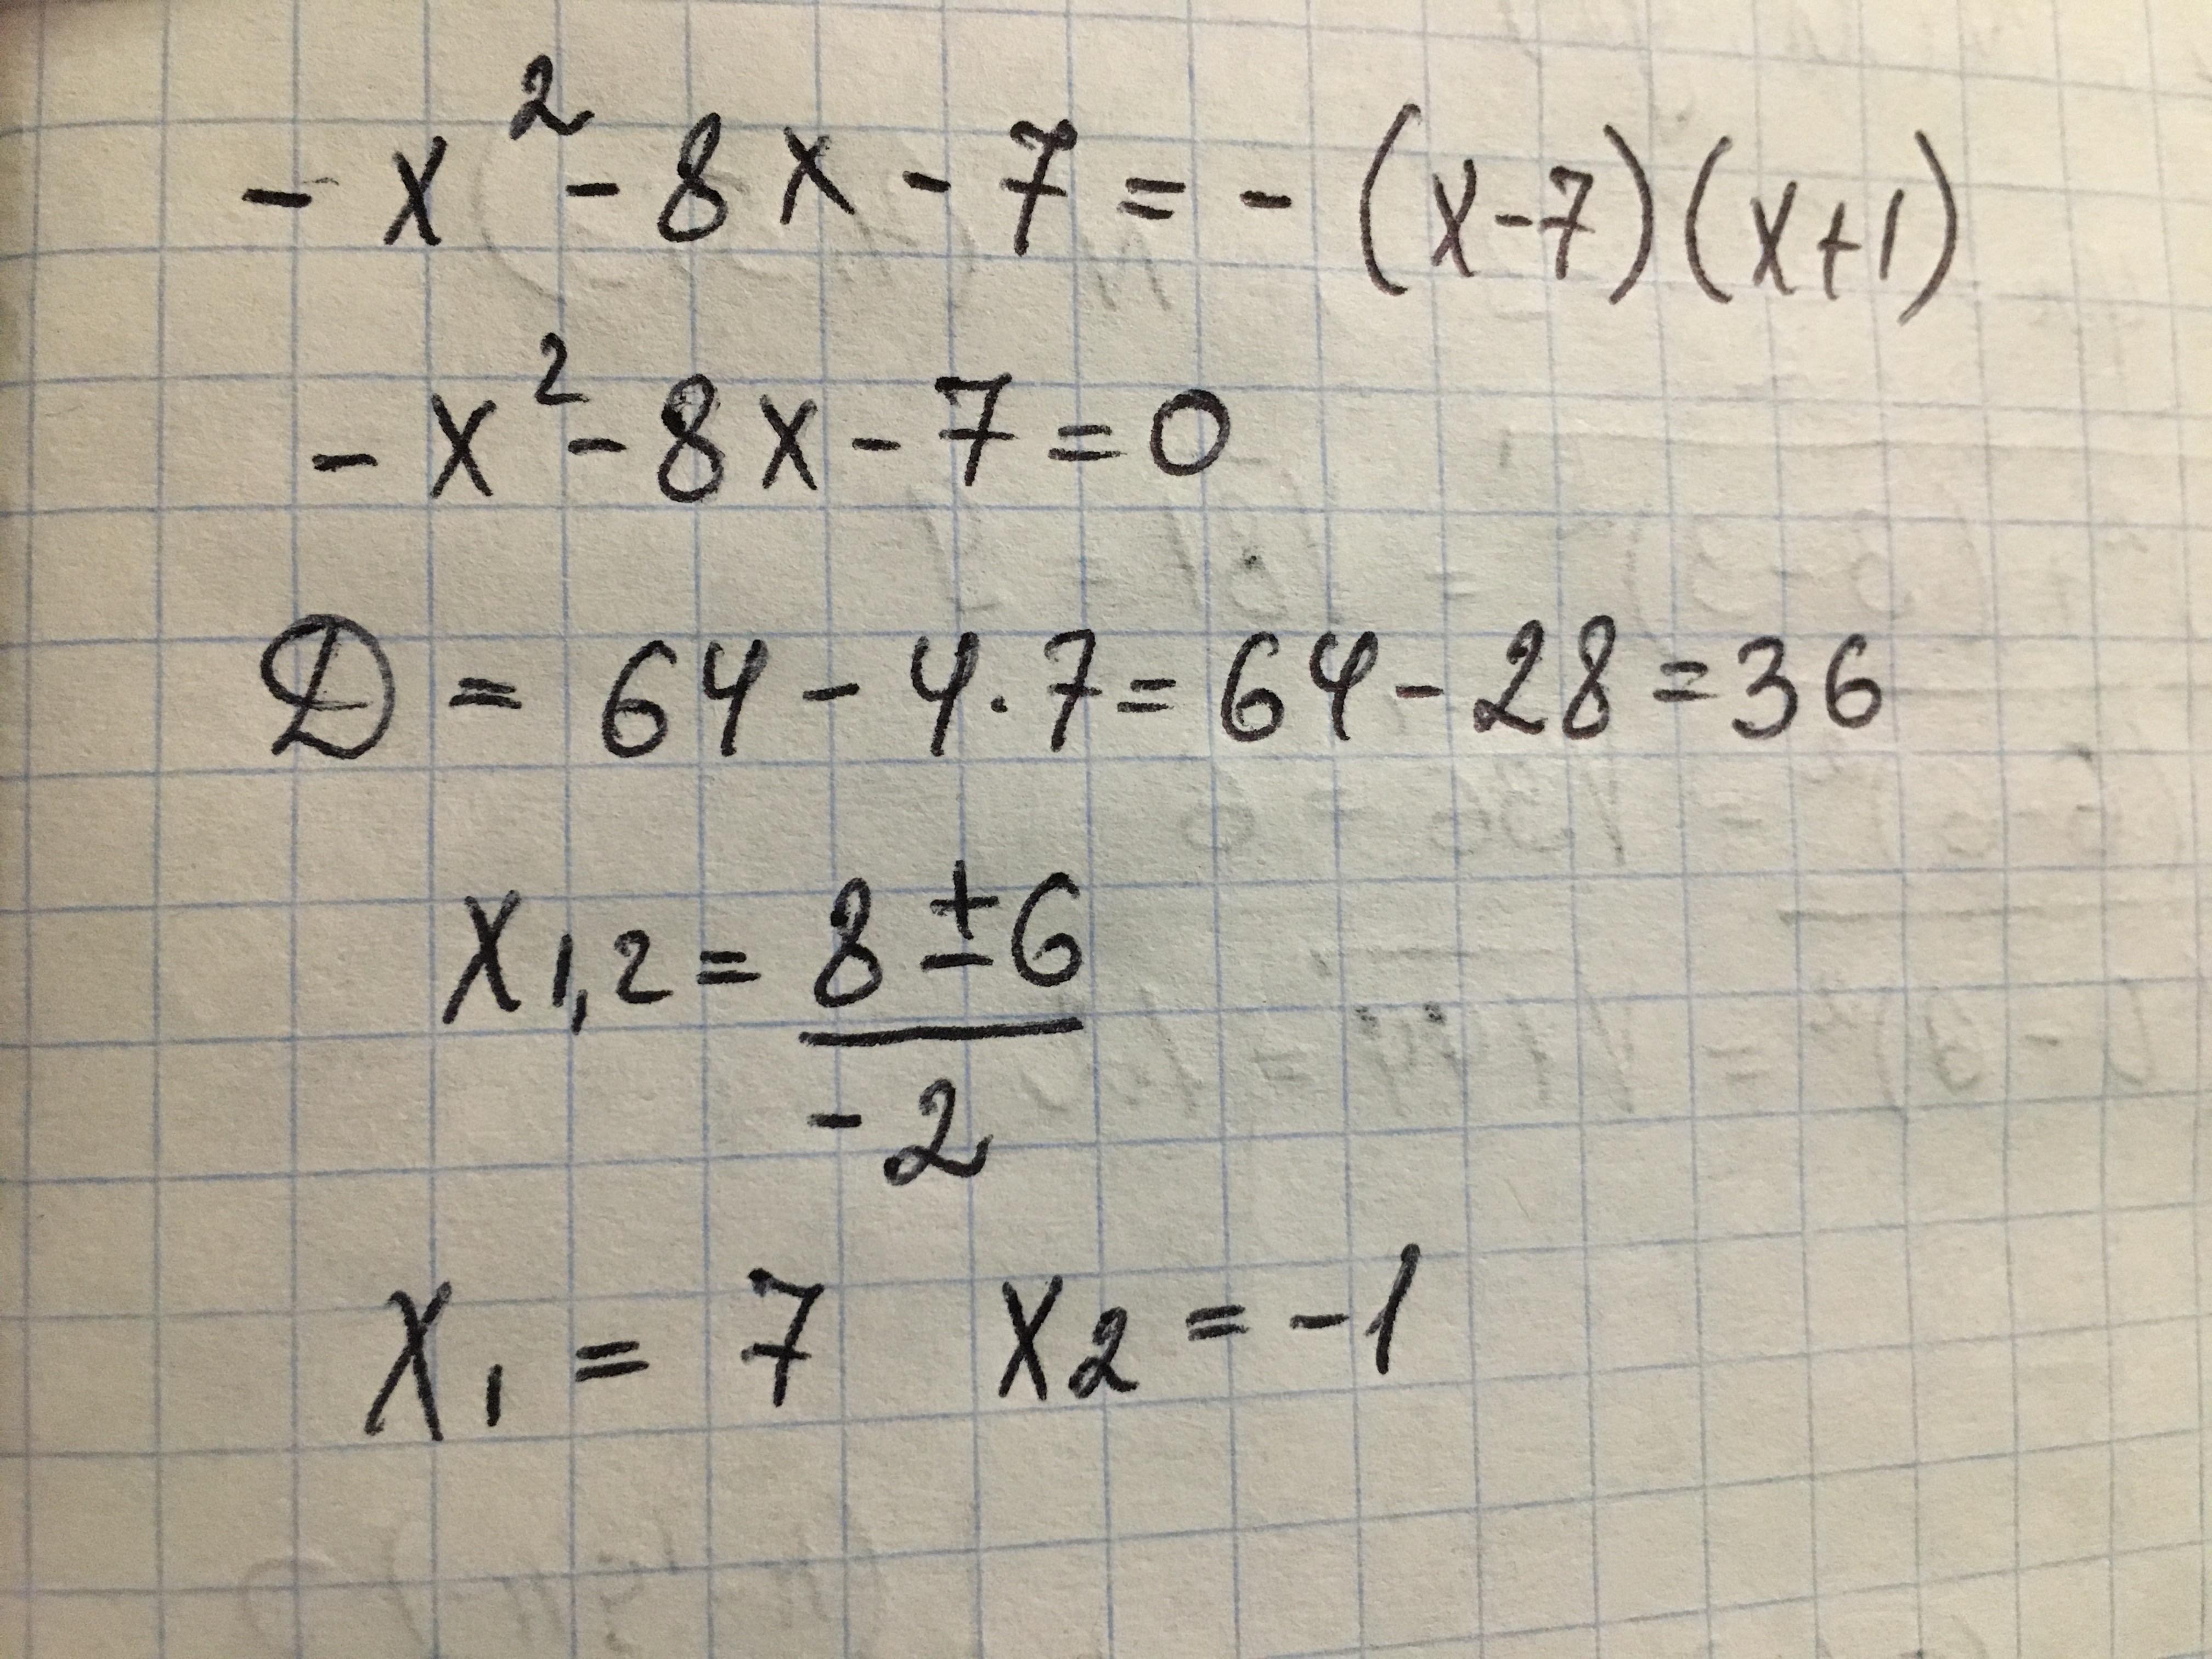 -x² - 8x - 7 = - (x-7)(x+1)
-x² - 8x - 7 = 0
D = 64 - 4·7 = 64 - 28 = 36
x₁,₂ = (8 ± 6) / -2
x₁ = 7   x₂ = -1